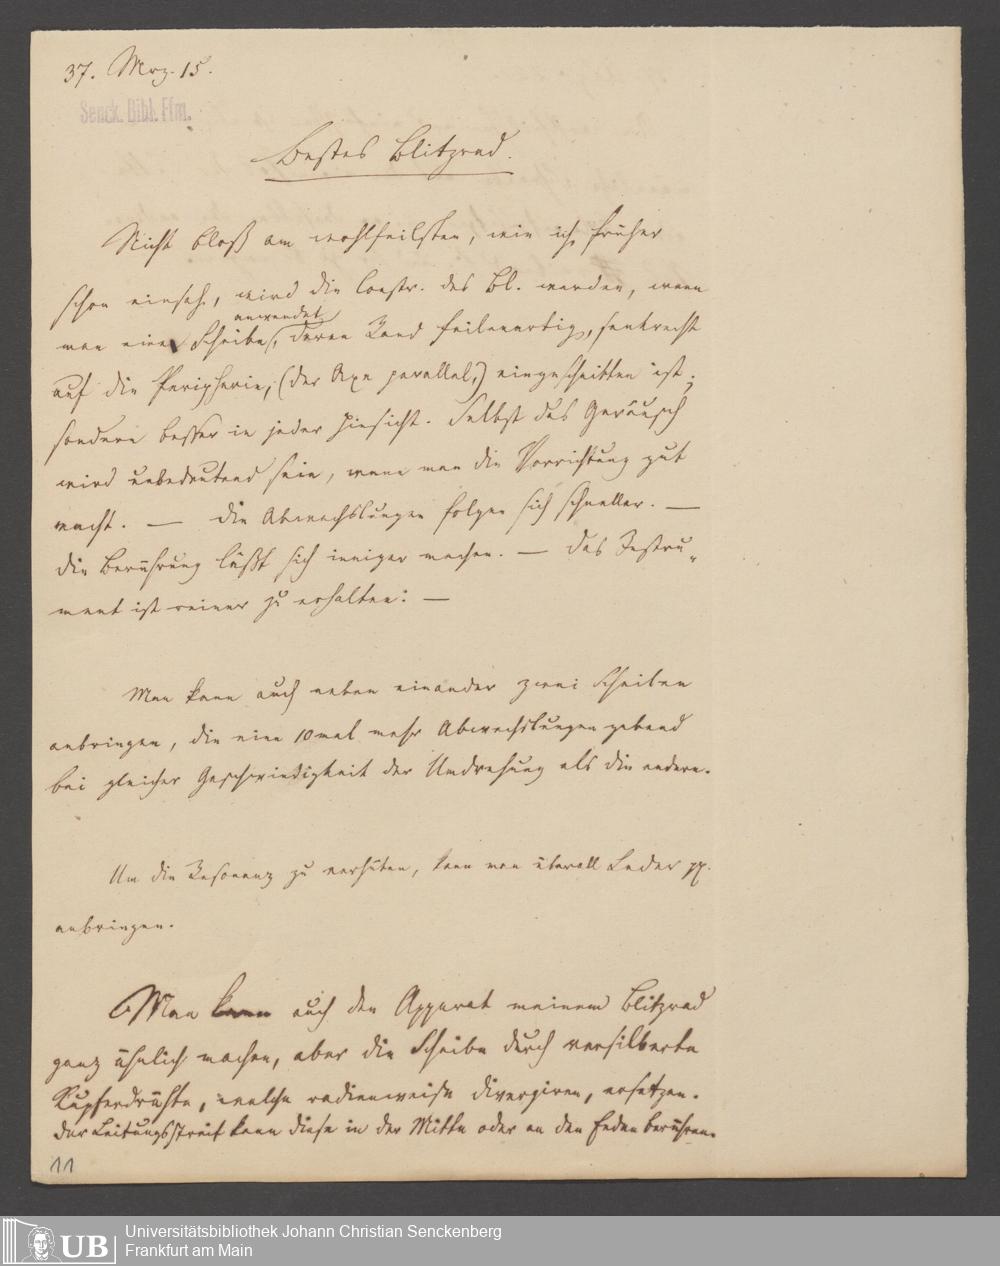 37. Mrz. 15.
Senck. Bibl. Ffm.
Bestes Blitzrad.
Nicht bloß am wohlfeilsten, wie ich früher
schon einsah, wird die Constr. des Bl. werden, wenn
anwendet
man eine Scheibe, deren Rand feilenartig, senkrecht
auf die Peripherie, (der Axe parallel,) eingeschnitten ist;
sondern besser in jeder Hinsicht. Selbst das Geräusch
wird unbedeutend sein, wenn man die Vorrichtung gut
macht. — Die Abwechslungen folgen sich schneller. —
die Berührung läßt sich inniger machen. — Das Instru-
ment ist reiner zu erhalten: —
Man kann auch neben einander zwei Scheiben
anbringen, die eine 10mal mehr Abwechslungen gebend
bei gleicher Geschwindigkeit der Umdrehung als die andere.
Um die Resonanz zu verhüten, kann man überall Leder pp.
anbringen.
Man kann auch den Apparat meinem Blitzrad
ganz ähnlich machen, aber die Scheibe durch versilberte
Kupferdrähte, welche radienweise divergiren, ersetzen.
Der Leitungsstreif kann diese in der Mitte oder an den Enden berühren.
11
UB
Universitätsbibliothek Johann Christian Senckenberg
Frankfurt am Main